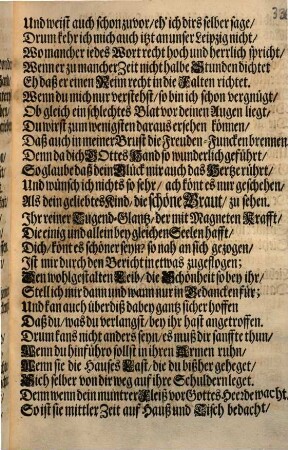 Und weist auch schon zuvor/ eh' ich dirs selber sage/
Drum kehr ich mich auch itzt an unser Leipzig nicht/
Wo mancher iedes Wort recht hoch und herrlich spricht/
Wenn er zu mancher Zeit nicht halbe Stunden dichtet
Eh daß er einen Reim recht in die Falten richtet.
Wenn du mich nur verstehst/ so bin ich schon vergnügt/
Ob gleich ein schlechtes Blat vor deinen Augen liegt/
Du wirst zum wenigsten daraus ersehen können/
Daß auch in meiner Brust die Freuden-Funcken brennen.
Denn da dich Gottes Hand so wunderlich geführt/
So glaube daß dein Glück mir auch das Hertze rührt/
Und wünsch ich nichts so sehr/ ach könt es nur geschehen/
Als dein geliebtes Kind/ die schöne Braut/ zu sehen.
Ihr reiner Tugend-Glantz/ der mit Magneten Krafft/
Die einig und allein bey gleichen Seelen hafft/
Dich/ könt es schöner seyn/ so nah an sich gezogen/
Ist mir durch den Bericht in etwas zugeflogen;
Den wohlgestalten Leib/ die Schönheit so bey ihr/
Stell ich mir dann und wann nur in Gedancken für;
Und kan auch überdiß dabey gantz sicher hoffen
Daß du/ was du verlangst/ bey ihr hast angetroffen.
Drum kans nicht anders seyn/ es muß dir sanffte thun/
Wenn du hinführo sollst in ihren Armen ruhn/
Wenn sie die Hauses Last/ die du bißher geheget/
Sich selber von dir weg auf ihre Schuldern leget.
Denn wenn dein muntrer Fleiß vor Gottes Heerde wacht.
So ist sie mittler Zeit auf Hauß und Tisch bedacht/